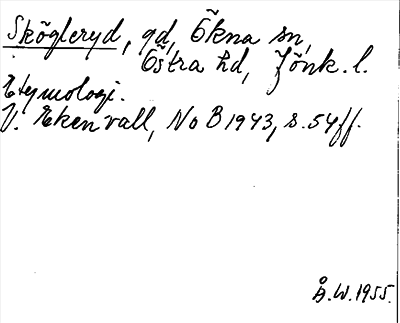 Skögleryd, gd, Ökna sn,
Östra hd, Jönk. l.
Etymologi.
V. Ekenvall, NoB 1943, s. 54ff.
Å.W. 1955.